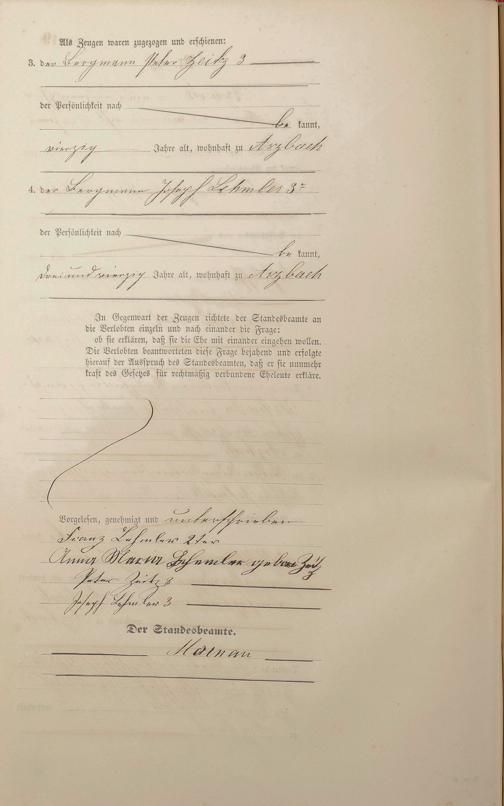 Als Zeugen waren zugezogen und erschienen:
3. der Bergmann Peter Zeitz 3
der Persönlichkeit nach
be kannt,
vierzig Jahre alt, wohnhaft zu Arzbach
4. der Bergmann Joseph Lehmler 3
der Persönlichkeit nach
be kannt,
dreiundvierzig Jahre alt, wohnhaft zu Arzbach
In Gegenwart der Zeugen richtete der Standesbeamte an
die Verlobten einzeln und nach einander die Frage:
ob sie erklären, daß sie die Ehe mit einander eingehen wollen.
Die Verlobten beantworteten diese Frage bejahend und erfolgte
hierauf der Ausspruch des Standesbeamten, daß er sie nunmehr
kraft des Gesetzes für rechtmäßig verbundene Eheleute erkläre.
Vorgelesen, genehmigt und unterschrieben
Franz Lehmler 2ter
Anna Maria Lehmler geborn Zeitz
Peter Zeitz 3
Joseph Lehmler 3
Der Standesbeamte.